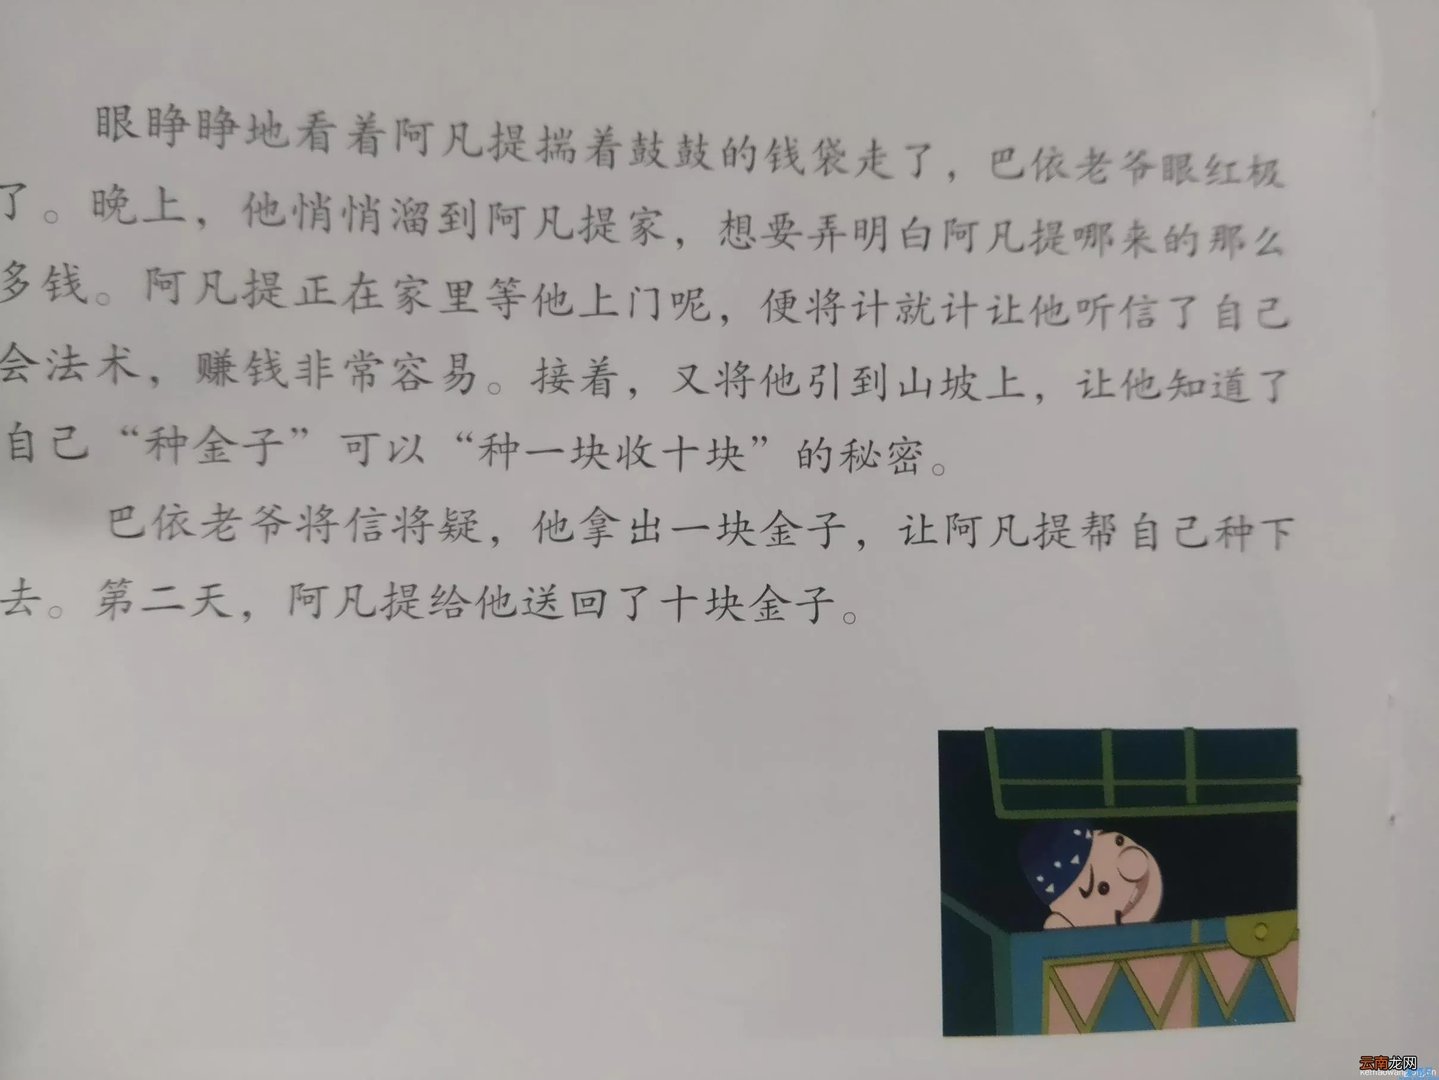 眼睁睁地看着阿凡提揣着鼓鼓的钱袋走了，巴依老爷眼红极
了。晚上，他悄悄溜到阿凡提家，想要弄明白阿凡提哪来的那么
多钱。阿凡提正在家里等他上门呢，便将计就计让他听信了自己
会法术，赚钱非常容易。接着，又将他引到山坡上，让他知道了
自己“种金子”可以“种一块收十块”的秘密。
巴依老爷将信将疑，他拿出一块金子，让阿凡提帮自己种下
去。第二天，阿凡提给他送回了十块金子。
云南龙网